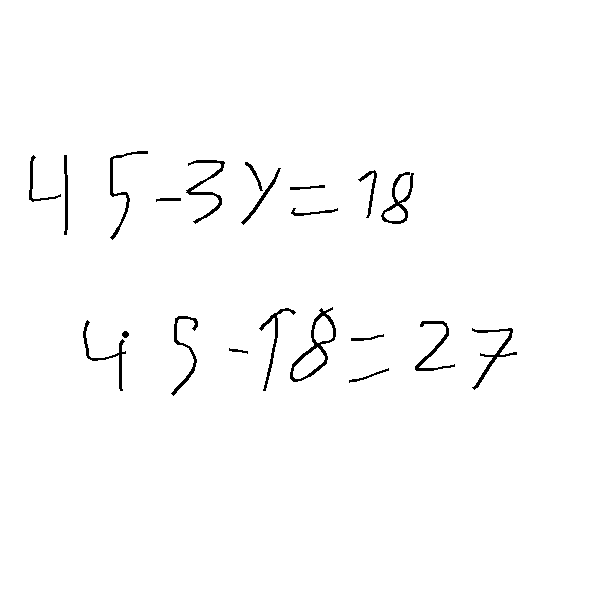 45-3y=18
45-18=27